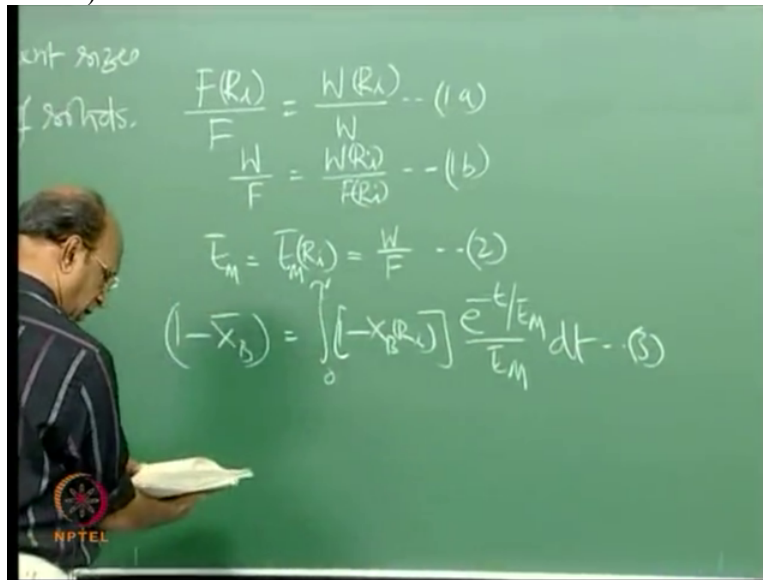 size
of solids.
F(Ri)/F = W(Ri)/W -- (1a)
W/F = W(Ri)/F(Ri) -- (1b)
t̄M = t̄M(Ri) = W/F -- (2)
(1 - X̄B) = ∫0^τ [1 - XB(Ri)] e^(-t/t̄M)/t̄M dt -- (3)
NPTEL